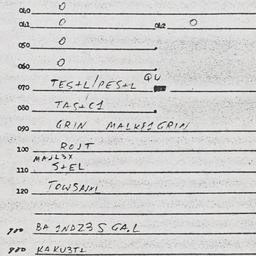 040 0
041 0 042 0
050 0
060 0
070 TES+L/PES+L QU
080 TAS+C1
090 GRIN MALKE1GRIN
100 ROJT
MAJL3X
110 S+EL
120
900 BA 1NDZ3S GA.L
980 KAKU3TL